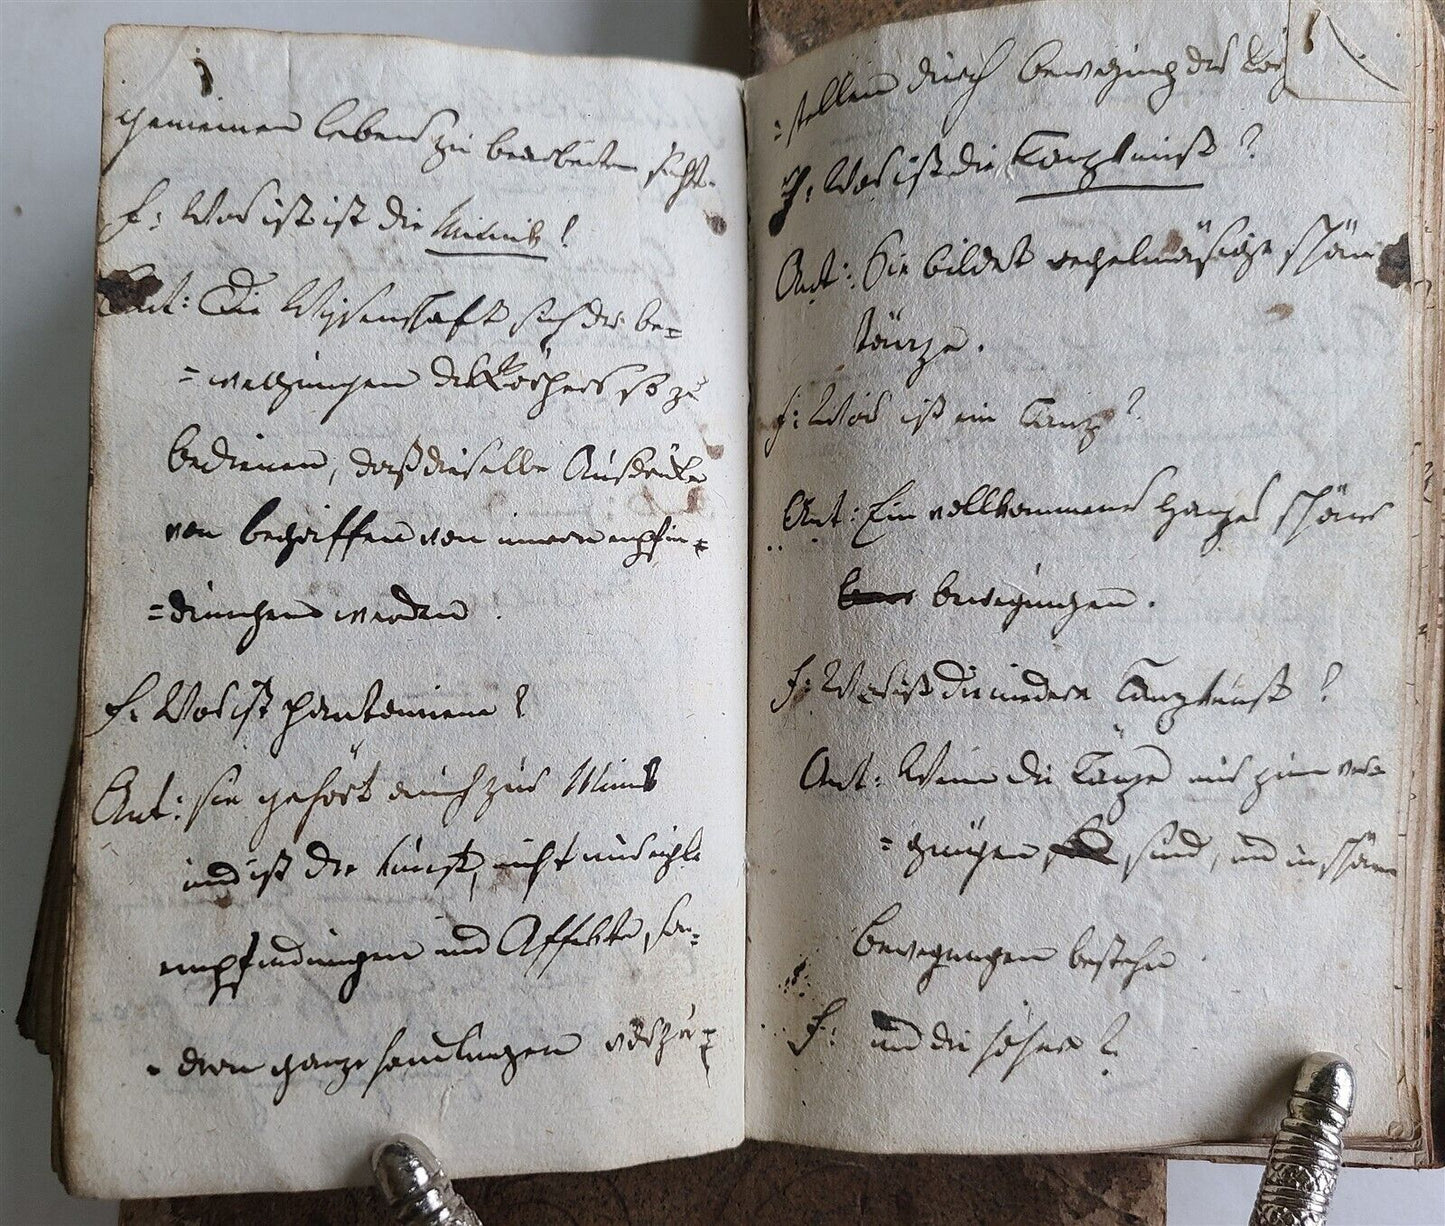 gemeinen lebens zu bearbeiten sucht.
F: Was ist ist die Mimik?
Ant: Die Wissenschaft sich der be=
=wegungen des Körpers so zu
bedienen, daß dieselbe Ausdrüke
von begriffen von innern empfin=
=dungen werden.
F: Was ist pantomime?
Ant: sie gehört auch zur Mimik
und ist die kunst, nicht nur
empfindungen und Affekte, son=
=dern ganze handlungen vorzu=
=stellen durch bewegung des
F: Was ist die Tanzkunst?
Ant: Sie bildet regelmäsige schöne
tänze.
F: Was ist ein Tanz?
Ant: Ein vollkommenes ganzes schöner
bewegungen.
F: Was ist die niedere Tanzkunst?
Ant: Wenn die Tänze nur zum ver=
=gnügen sind, und in schönen
bewegungen bestehn
F: und die höhere?